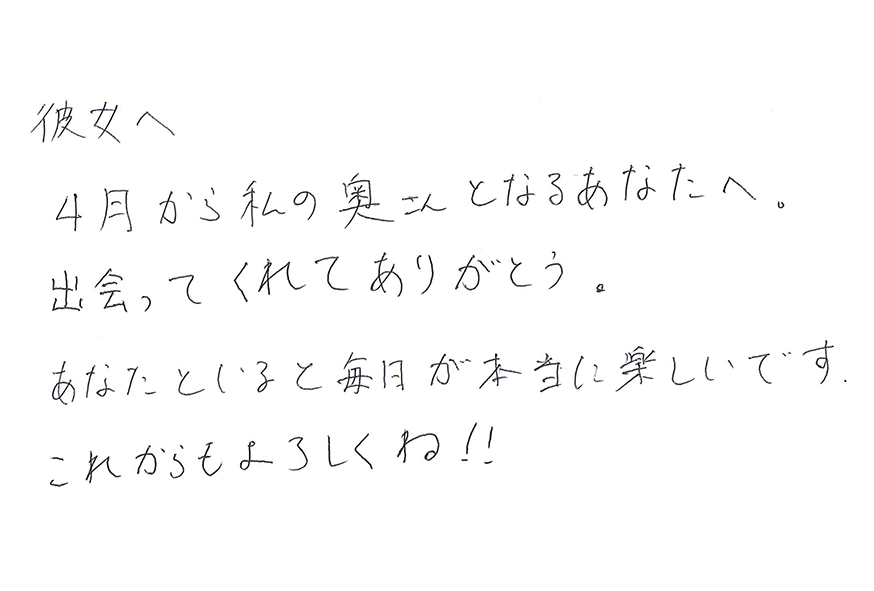 彼女へ
4月から私の奥さんとなるあなたへ。
出会ってくれてありがとう。
あなたといると毎日が本当に楽しいです.
これからもよろしくね!!